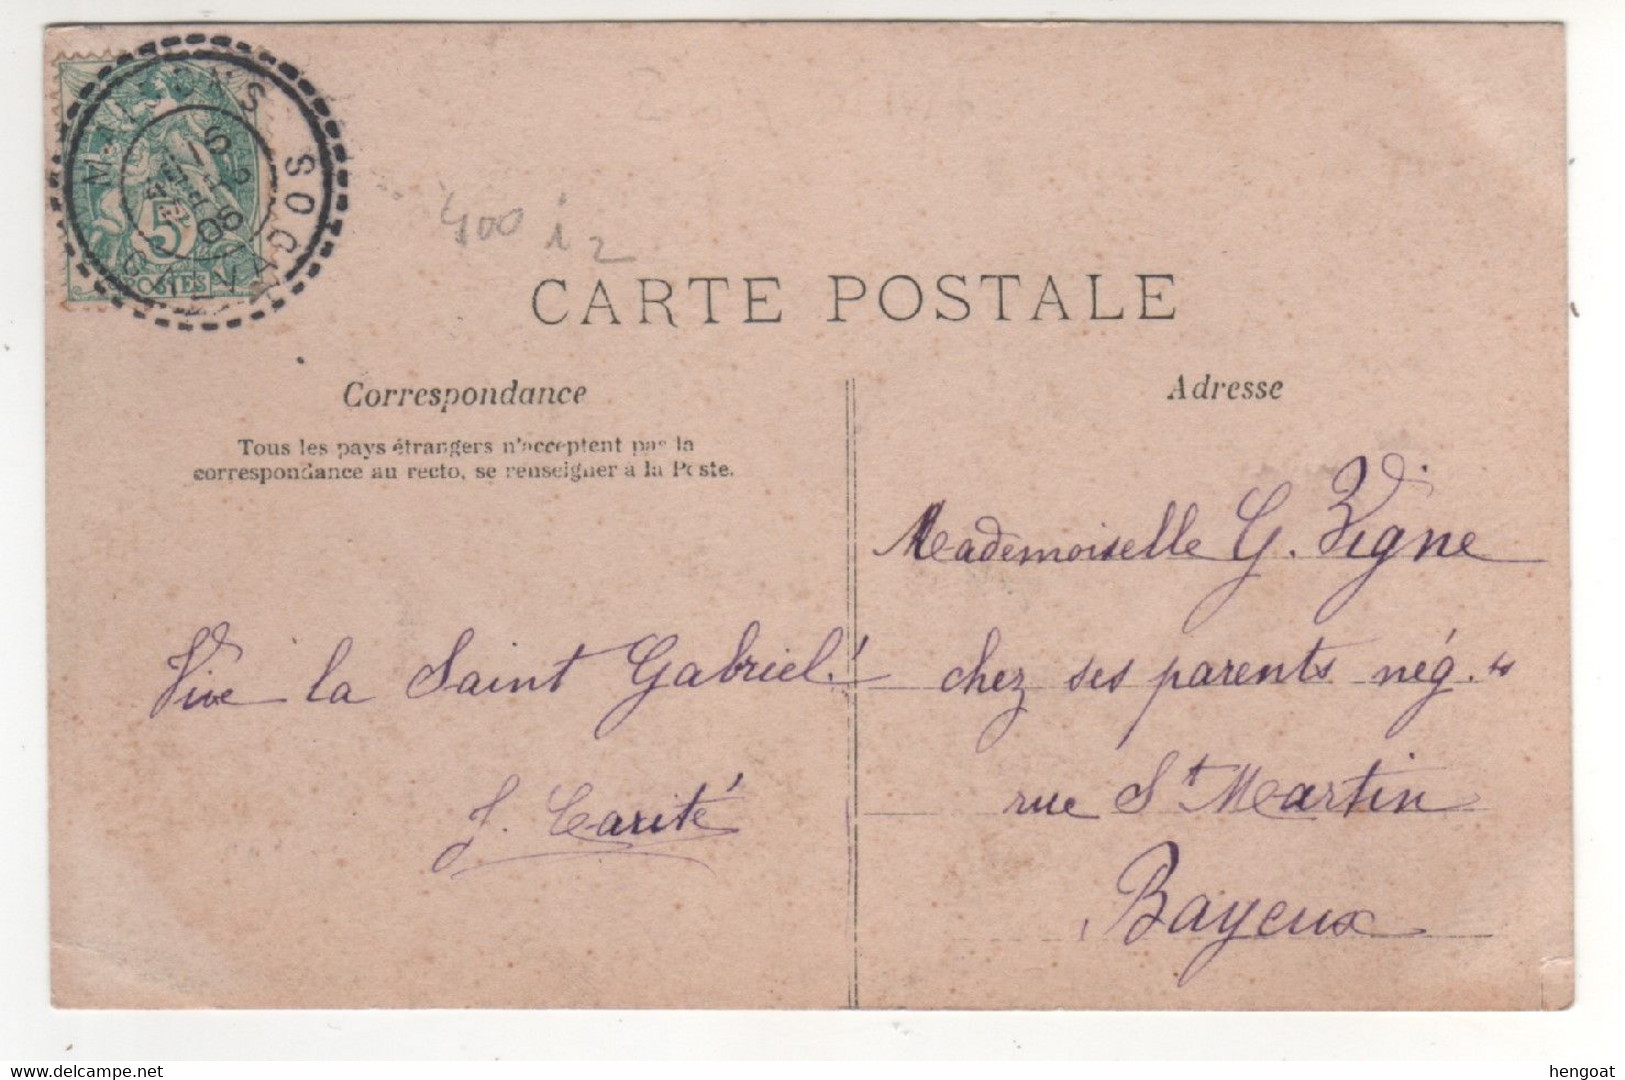 5
POSTES
CALVADOS
08
400 i2
CARTE POSTALE
Correspondance
Tous les pays étrangers n'acceptent pas la
correspondance au recto, se renseigner à la Poste.
Vive la Saint Gabriel!
J. Carité
Adresse
Mademoiselle G. Vigne
chez ses parents nég.ts
rue St Martin
Bayeux
hengoat